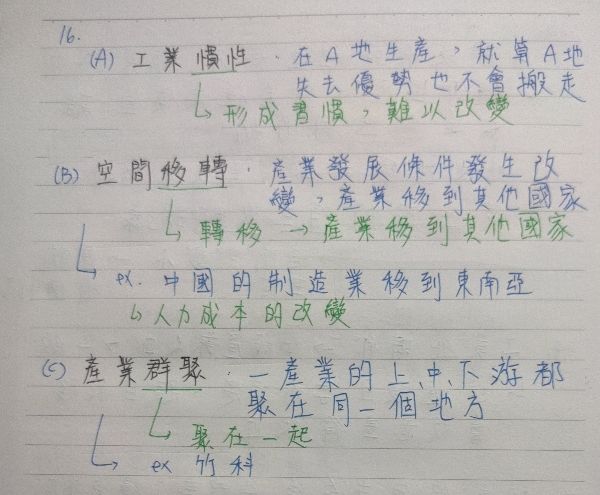 16.
(A) 工業慣性．在A地生產，就算A地
失去優勢也不會搬走
↳ 形成習慣，難以改變
(B) 空間移轉．產業發展條件發生改
變，產業移到其他國家
↳ 轉移 → 產業移到其他國家
↳ ex. 中國的制造業移到東南亞
↳ 人力成本的改變
(C) 產業群聚．一產業的上、中、下游都
聚在同一個地方
↳ 聚在一起
↳ ex 竹科